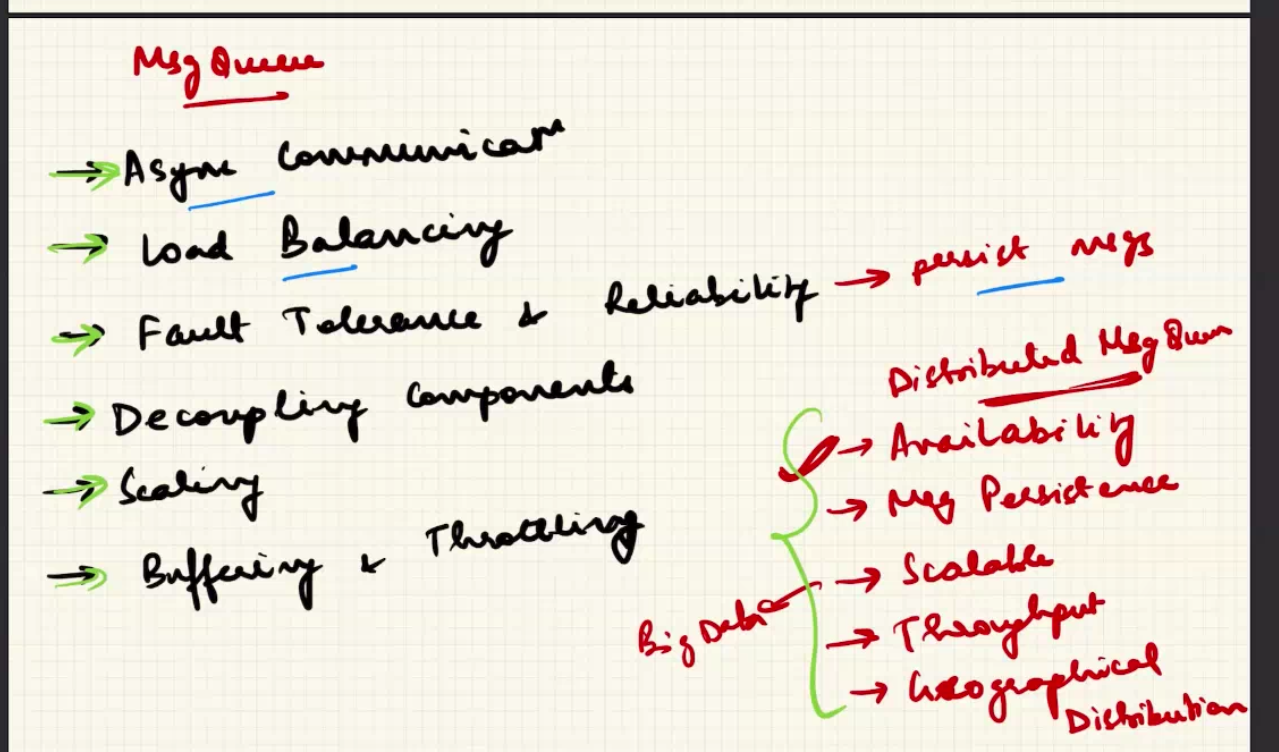 Msg Queue
→ Async Communicatn
→ Load Balancing
→ Fault Tolerance & Reliability → persist msgs
→ Decoupling Components
→ Scaling
→ Buffering & Throttling
Distributed Msg Queue
→ Availability
→ Msg Persistence
→ Scalable
→ Throughput
→ Geographical
Distribution
Big Data